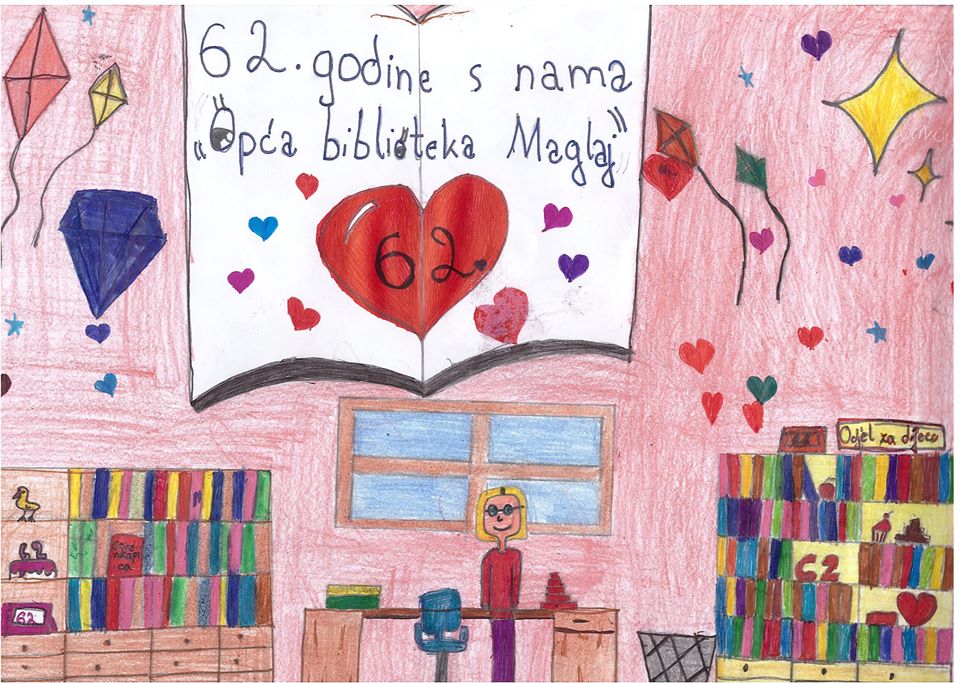 62. godine s nama
„Opća biblioteka Maglaj”
62.
Odjel za djecu
62
62
62